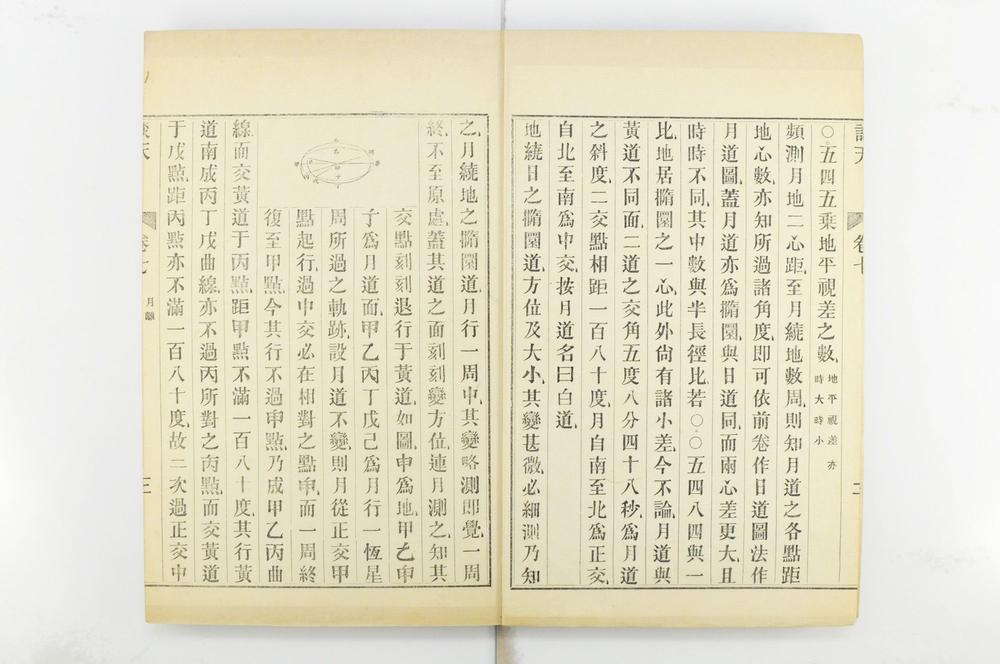 談天
卷七
二
〇.五四五乘地平視差之數
地平視差亦
時大時小
頻測月地二心距至月繞地數周則知月道之各點距
地心數亦知所過諸角度即可依前卷作日道圖法作
月道圖蓋月道亦爲撱圜與日道同而兩心差更大且
時時不同其中數與半長徑比若〇.〇五四八四與一
比地居撱圜之一心此外尙有諸小差今不論月道與
黃道不同面二道之交角五度八分四十八秒爲月道
之斜度二交點相距一百八十度月自南至北爲正交
自北至南爲中交按月道名曰白道
地繞日之撱圜道方位及大小其變甚微必細測乃知
之月繞地之撱圜道月行一周中其變略測即覺一周
終不至原處蓋其道之面刻刻變方位連月測之知其
交點刻刻退行于黃道如圖申爲地甲乙申
子爲月道面甲乙丙丁戊己爲月行一恆星
周所過之軌跡設月道不變則月從正交甲
點起行過中交必在相對之點申而一周終
復至甲點今其行不過申點乃成甲乙丙曲
線面交黃道于丙點距甲點不滿一百八十度其行黃
道南成丙丁戊曲線亦不過丙所對之丙點而交黃道
于戊點距丙點亦不滿一百八十度故二次過正交中
談天
卷七
月離
三